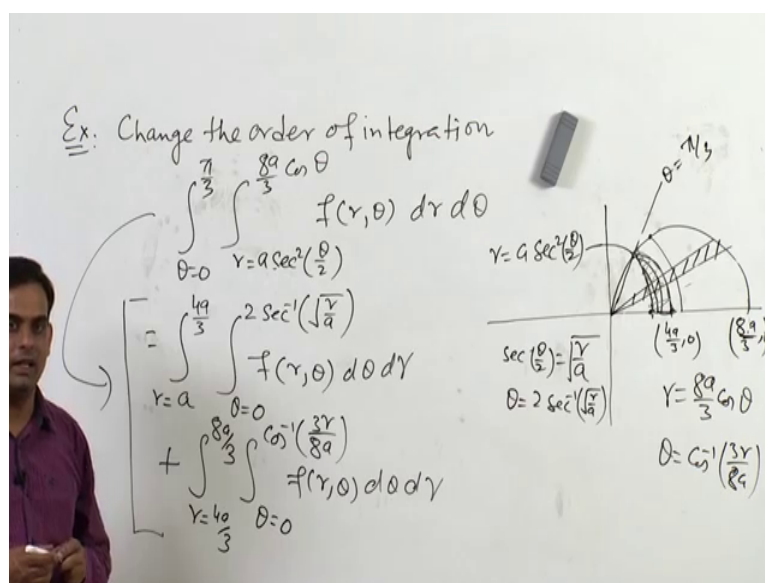 Ex: Change the order of integration
∫_{θ=0}^{π/3} ∫_{r=a sec²(θ/2)}^{8a/3 cos θ} f(r,θ) dr dθ
= ∫_{r=a}^{4a/3} ∫_{θ=0}^{2 sec⁻¹(√(r/a))} f(r,θ) dθ dr
+ ∫_{r=4a/3}^{8a/3} ∫_{θ=0}^{cos⁻¹(3r/8a)} f(r,θ) dθ dr
θ = π/3
r = a sec²(θ/2)
(4a/3, 0)
(8a/3,
sec(θ/2) = √(r/a)
θ = 2 sec⁻¹(√(r/a))
r = 8a/3 cos θ
θ = cos⁻¹(3r/8a)